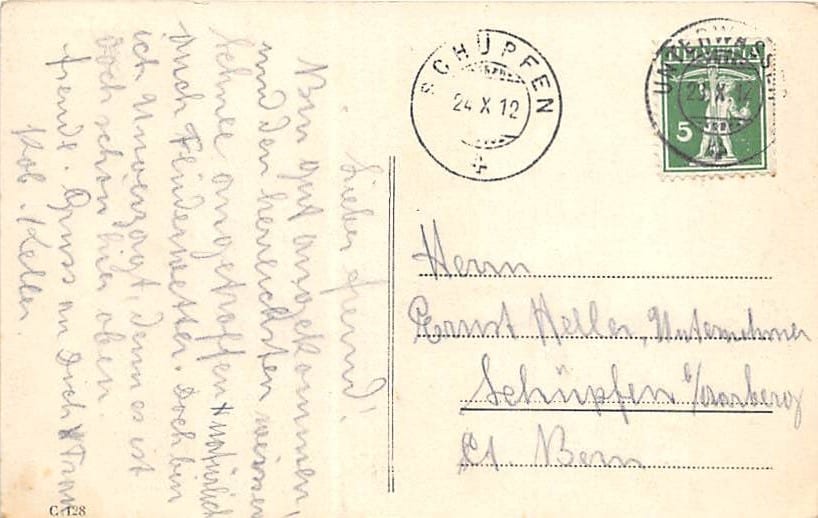 Lieber Freund!
Bin gut angekommen!
und den herrlichsten weissen
Schnee angetroffen + natürlich
auch Fluderwetter. Doch bin
ich unverzagt, denn es ist
doch schön hier oben.
Freude. Gruss an Dich & Frau
Rob. Keller
SCHÜPFEN
24 X 12
UNTERWASSER
23 X 12
5
Herrn
Ernst Heller, Unternehmer
Schüpfen b/Aarberg
Ct. Bern
C. 128